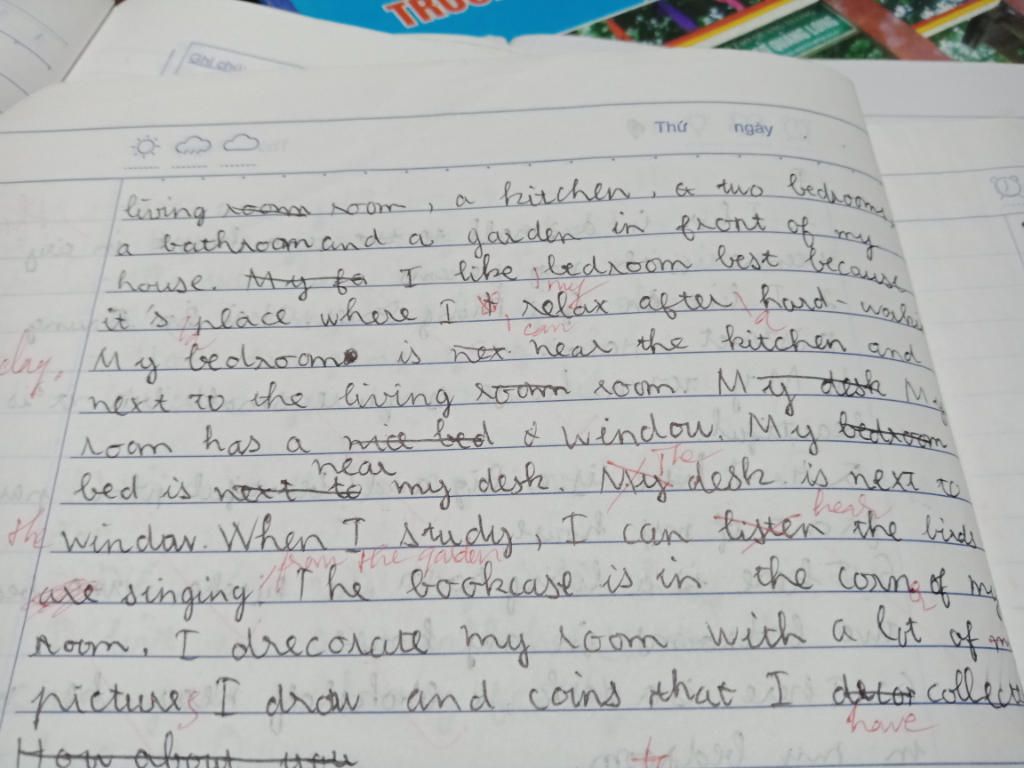 TRƯỜ
Ghi chú
Thứ ngày
living room room, a kitchen, a two bedrooms,
a bathroom and a garden in front of my
house. My fa I like bedroom best because
my
it's place where I relax after hard-work
a can a
day,
My bedroom is nex near the kitchen and
next to the living room room. My desk My
room has a nice bed a window. My bedroom
near The
bed is next to my desk. My desk is next to
hear
the window. When I study, I can listen the birds
from the garden
are singing. The bookcase is in the corn of my
e
room. I drecorate my room with a lot of
pictures I draw and coins that I detor collect
have
How about you
to